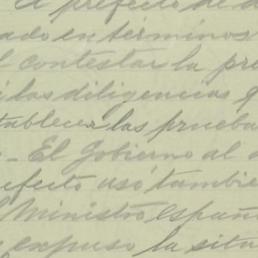 A prefecto de d
ado en terminos
l contestar la pre
i las diligencias q
tablecer las prueba
- El Gobierno al d
efecto usó tambie
Ministro españ
expuso la situ